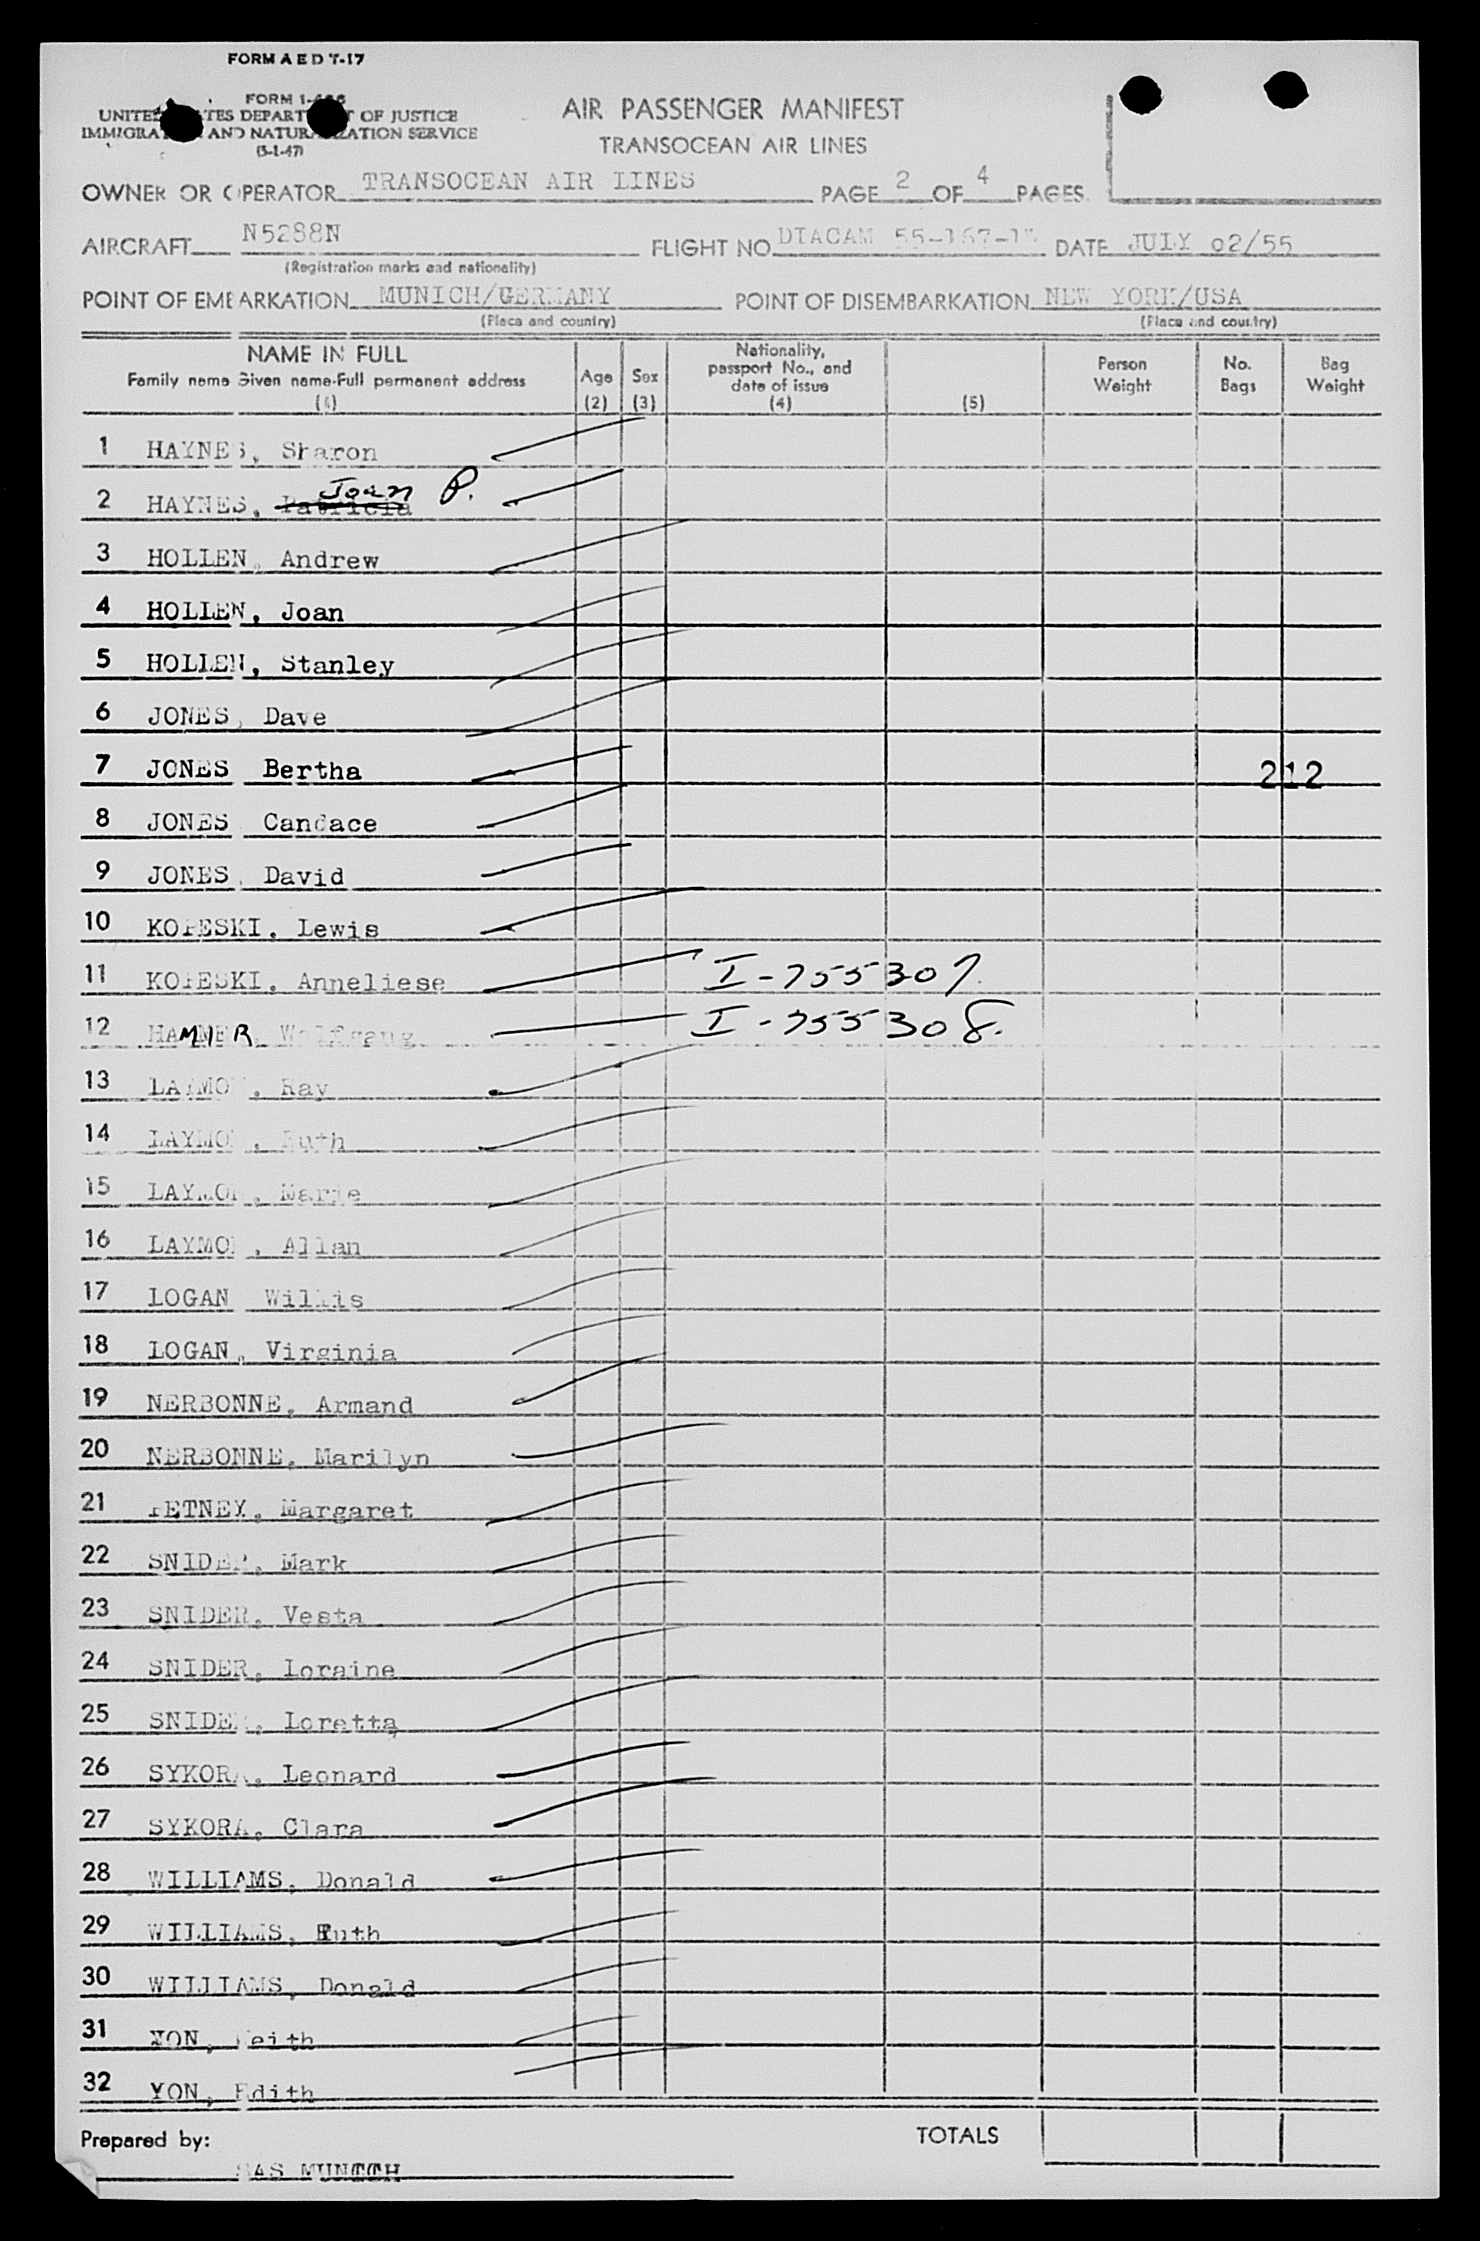 FORM A E D T-17
FORM I-466
UNITED STATES DEPARTMENT OF JUSTICE
IMMIGRATION AND NATURALIZATION SERVICE
(5-1-47)
AIR PASSENGER MANIFEST
TRANSOCEAN AIR LINES
OWNER OR OPERATOR TRANSOCEAN AIR LINES PAGE 2 OF 4 PAGES
AIRCRAFT N5288N FLIGHT NO DIACAM 55-167- DATE JULY 02/55
(Registration marks and nationality)
POINT OF EMBARKATION MUNICH/GERMANY POINT OF DISEMBARKATION NEW YORK/USA
(Place and country) (Place and country)
NAME IN FULL
Family name Given name-Full permanent address
(1)
Age
(2)
Sex
(3)
Nationality,
passport No., and
date of issue
(4)
(5)
Person
Weight
No.
Bags
Bag
Weight
1 HAYNES, Sharon
2 HAYNES, Patricia Joan P.
3 HOLLEN, Andrew
4 HOLLEN, Joan
5 HOLLEN, Stanley
6 JONES, Dave
7 JONES Bertha 212
8 JONES Candace
9 JONES, David
10 KOPESKI, Lewis
11 KOPESKI, Anneliese I-755307.
12 HAMMER, Wolfgang I-755308.
13 LAYMON, Ray
14 LAYMON, Ruth
15 LAYMON, Marie
16 LAYMON, Allan
17 LOGAN Willis
18 LOGAN, Virginia
19 NERBONNE, Armand
20 NERBONNE, Marilyn
21 PETNEY, Margaret
22 SNIDER, Mark
23 SNIDER, Vesta
24 SNIDER, Loraine
25 SNIDER, Loretta
26 SYKORA, Leonard
27 SYKORA, Clara
28 WILLIAMS, Donald
29 WILLIAMS, Ruth
30 WILLIAMS, Donald
31 YON, Keith
32 YON, Edith
TOTALS
Prepared by:
SAS MUNICH